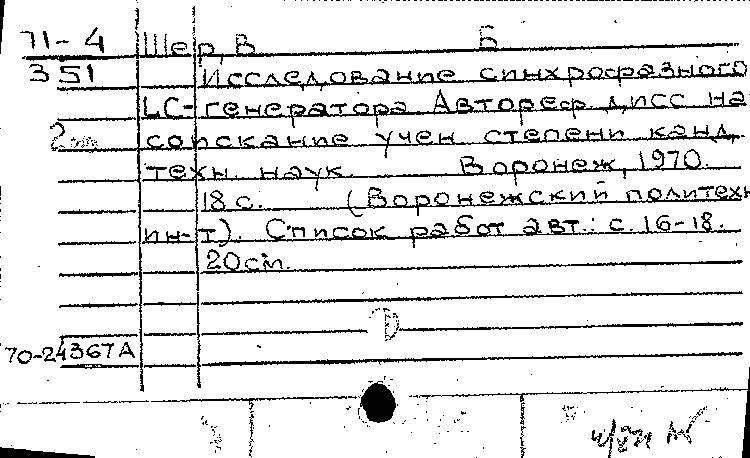 71-4 Шер, В. Б
351 Исследование синхрофазного
LC-генератора Автореф. дисс на
соискание учен степени канд.
техн. наук. Воронеж, 1970.
18 с. (Воронежский политехн
ин-т). Список работ авт.: с. 16-18.
20см.
70-24367А